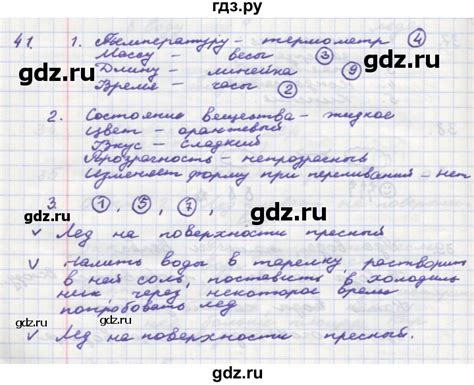 гдз.ру
41. 1. Температуру – термометр ④
Массу – весы ③
Длину – линейка ⑨
Время – часы ②
2. Состояние вещества – жидкое
Цвет – оранжевый
Вкус – сладкий
Прозрасность – непрозрасный
Изменяет форму при переливаний – нет
3. ①, ⑤, ⑦,
v Лед на поверхности пресный
v Налить воды в тарелку, растворить
в ней соль, поставить в холодиль
ник, через некоторое время
попробовать лед
v Лед на поверхности пресный.
gdz.ru
gdz.ru
gdz.ru
gdz.ru
gdz.ru
gdz.ru
gdz.ru
gdz.ru